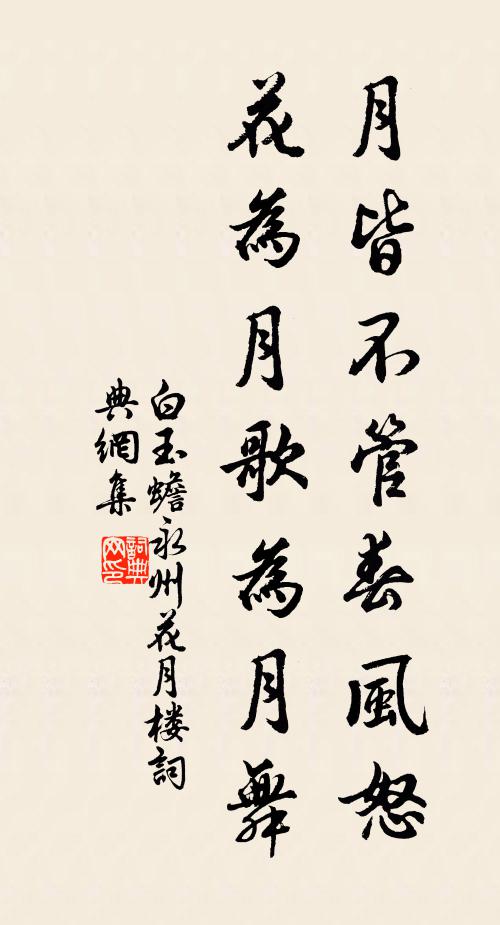 月皆不管春風怒
花為月歌為月舞
白玉蟾永州花月楼詞
典網集
詞典網印